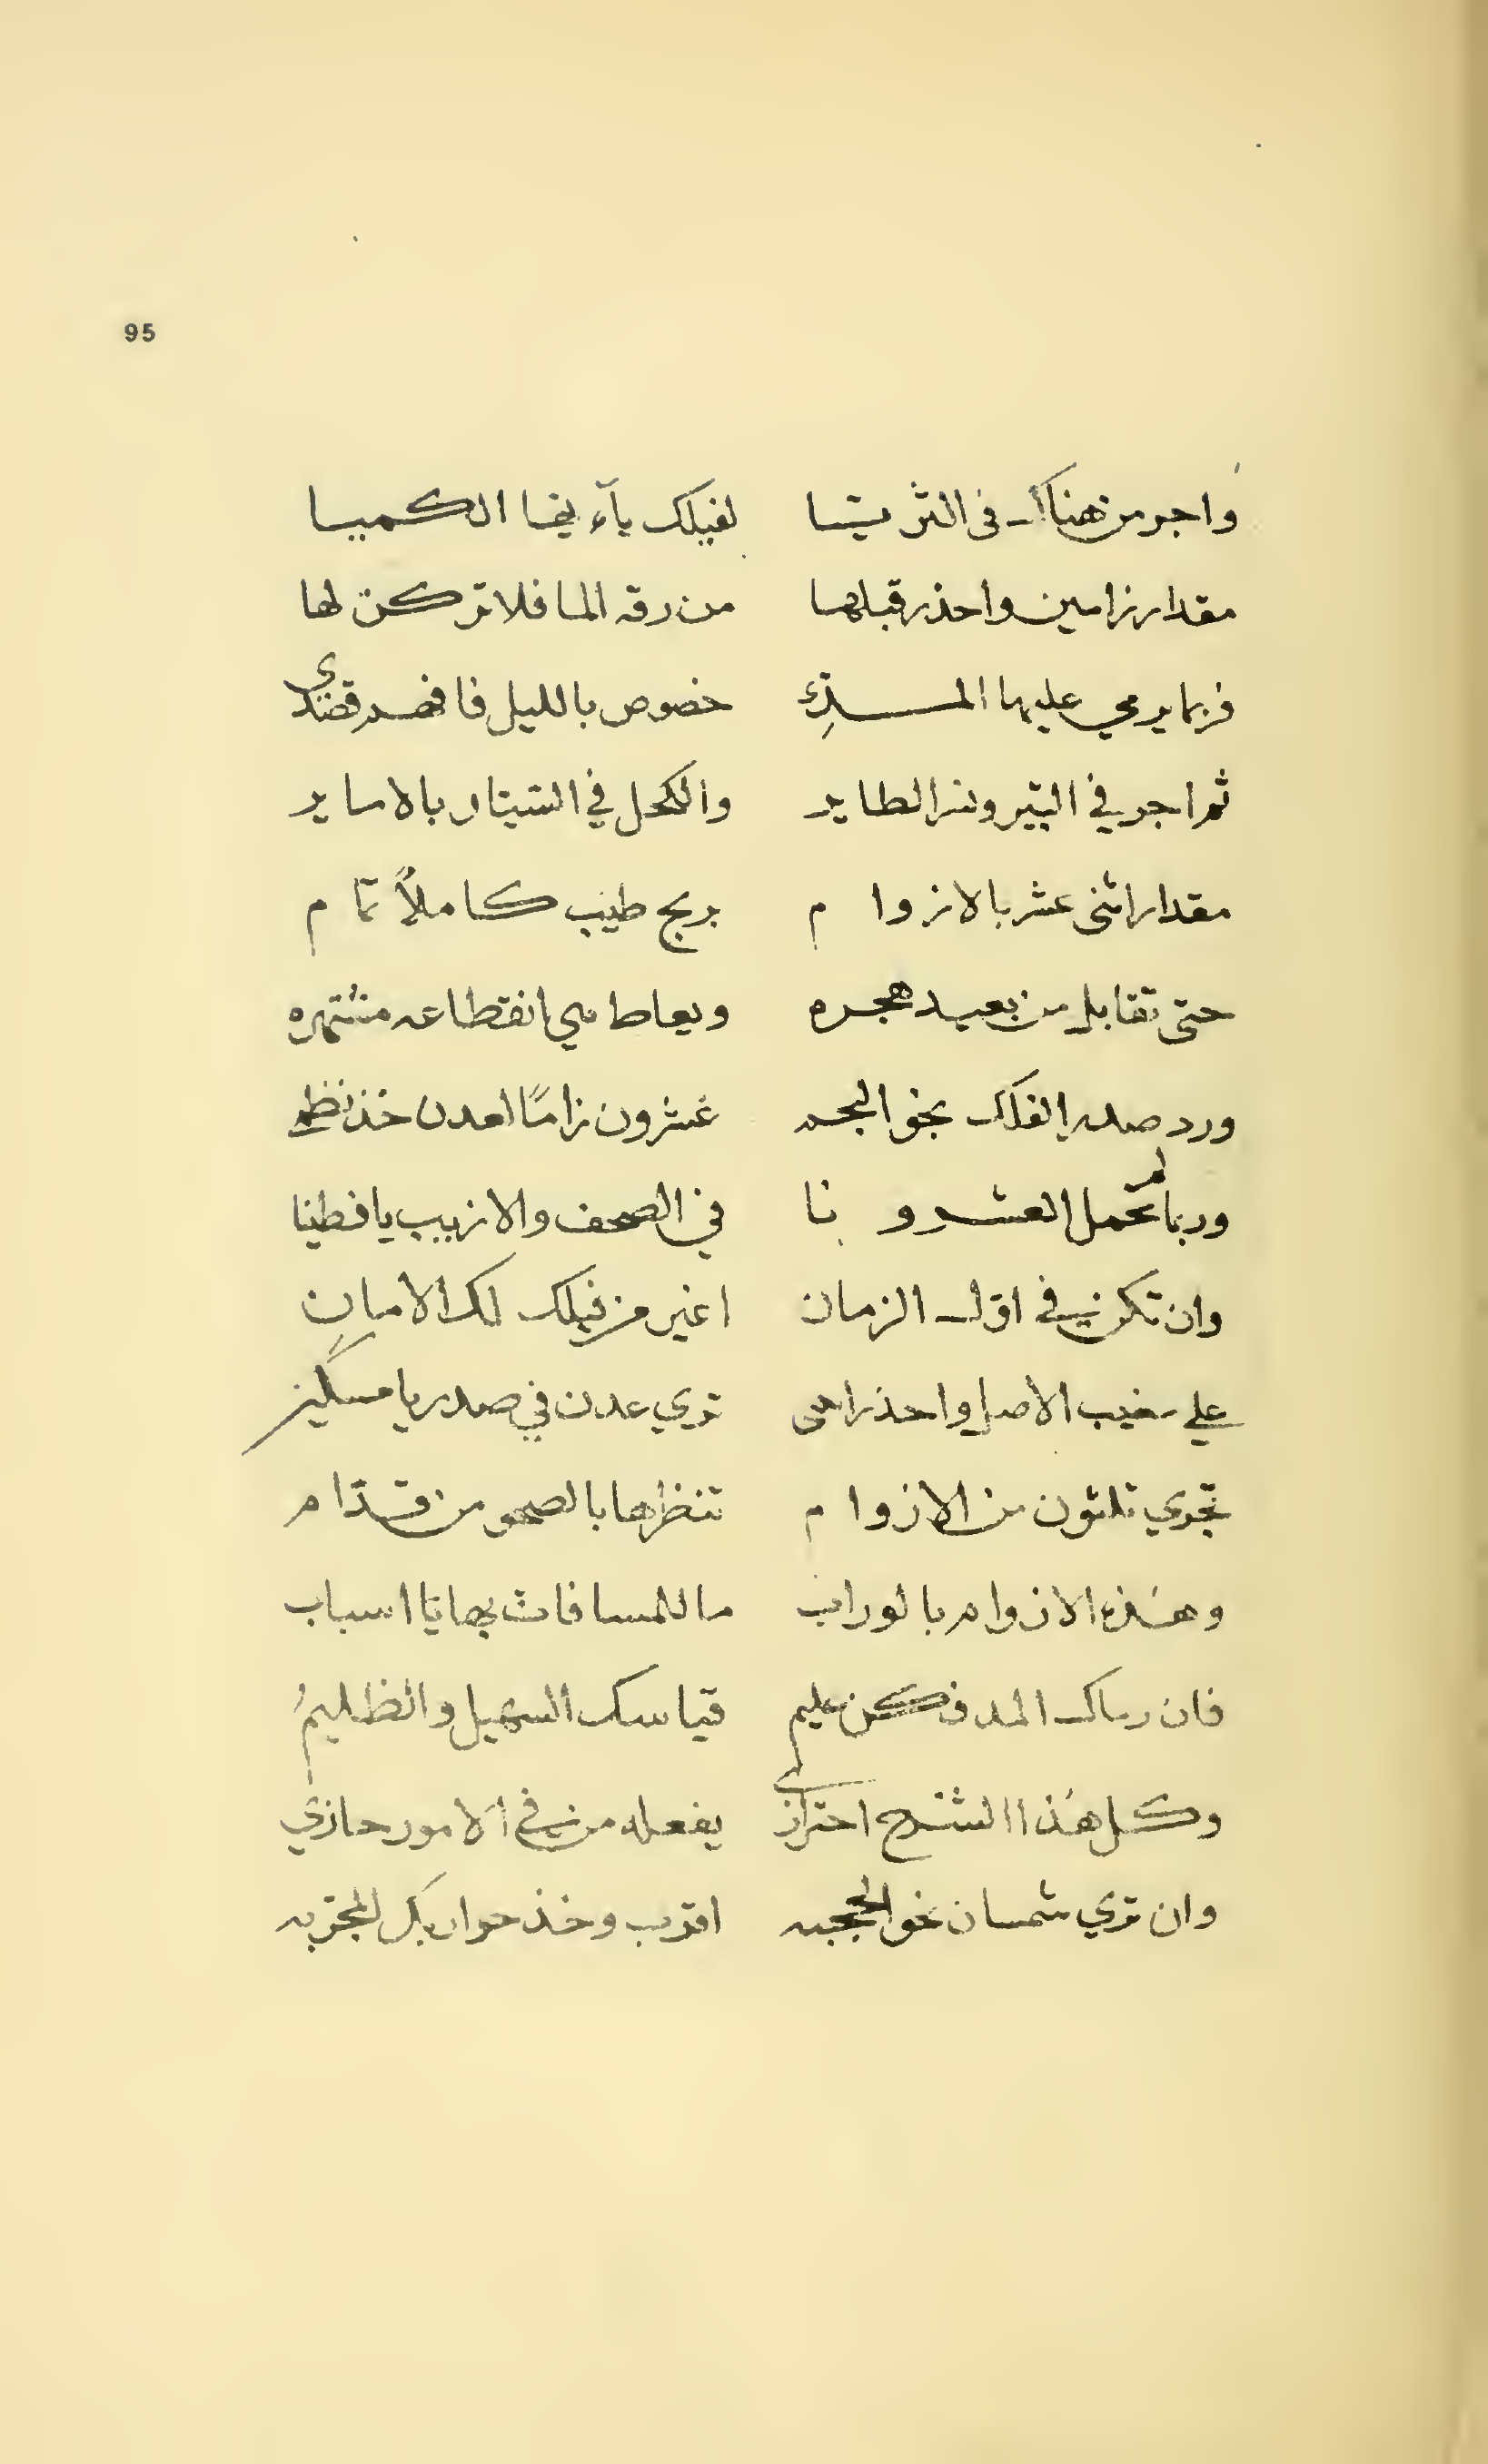 95
واجر من هناك في الثريا لفيلك يآء ايها الكميا
مقدار زامين واحذر قبلها من رقه الما فلا تركن لها
فربما يرمي عليها خصوص بالليل فا قصدي
ثم اجر في التير ونسر الطاير والكحل في الستار بالاساير
مقدار اثنى عشر بالازوام بريح طيب كاملاً تمام
حتى تقابل من بعيد هجره انقطاعه
ورد صدر الفلك نحو النجم عشرون زامًا لعدن خذ نظم
وربما لم تحمل العشرونا في الصحف والازيب يا فطينا
وان تكن في اول الزمان اغير من فيلك لك الامان
علي مغيب الاصل واحذر ترى عدن في صدر يا مسكين
تجري ثلثون من الازوام تنظرها بالصحو من قدّام
وهذه الازوام بالوراب ما للمسافات بها يا اسباب
فان رماك المد فكن عليم قياسك السهيل والظليمُ
وكل هذا الشرح احترازي يفعله من في الامور حازي
وان تري شمسان نحو اقرب وخذ حوار بكل التجربه